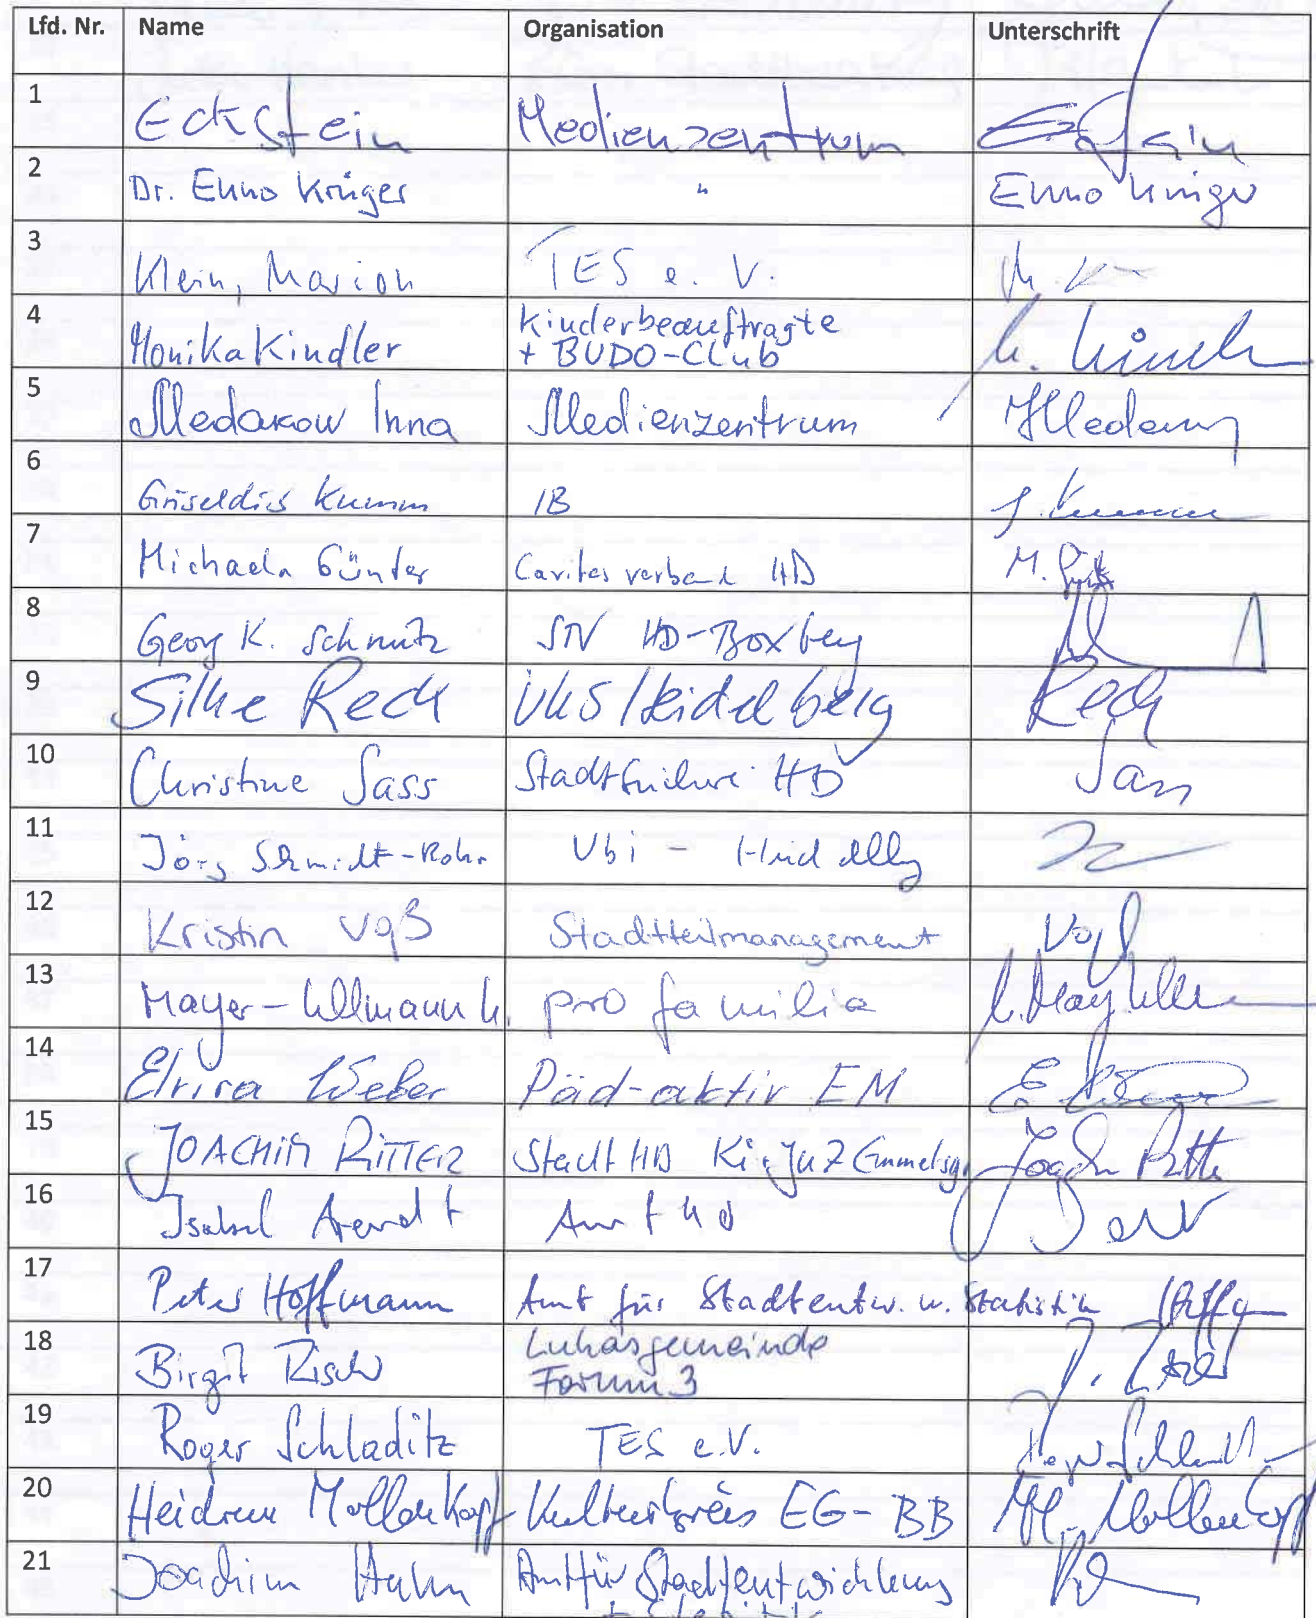 Lfd. Nr. Name Organisation Unterschrift
1 Eckstein Medienzentrum Eckstein
2 Dr. Enno Krüger " Enno Krüger
3 Klein, Marion TES e. V. M. K
4 Monika Kindler Kinderbeauftragte
+ BUDO-Club
5 Medakow Inna Medienzentrum
6 Griseldis Kumm IB G. Kumm
7 Michaela Günter Caritasverband HD M.
8 Georg K. Schmitz STV HD-Boxberg
9 Silke Reck VHS Heidelberg Reck
10 Christine Sass Stadtbücherei HD Sass
11 Jörg Schmidt-Rohr Vbi - Heidelbg
12 Kristin Voß Stadtteilmanagement Voß
13 Mayer-Ullmann U. pro familia
14 Elvira Weber Päd-aktiv EM E. Weber
15 JOACHIM RITTER Stadt HD Ki.JuZ Emmertsgr. Joachim Ritter
16 Isabel Arendt Amt 40
17 Peter Hoffmann Amt für Stadtentw. u. Statistik
18 Birgit Risch Lukasgemeinde
Forum 3
19 Roger Schladitz TES e.V. Roger Schladitz
20 Heidrun Mollenkopf Kulturkreis EG-BB H. Mollenkopf
21 Joachim Hahn Amt für Stadtentwicklung